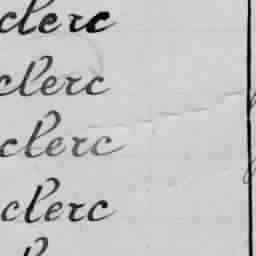 clerc
clerc
clerc
clerc